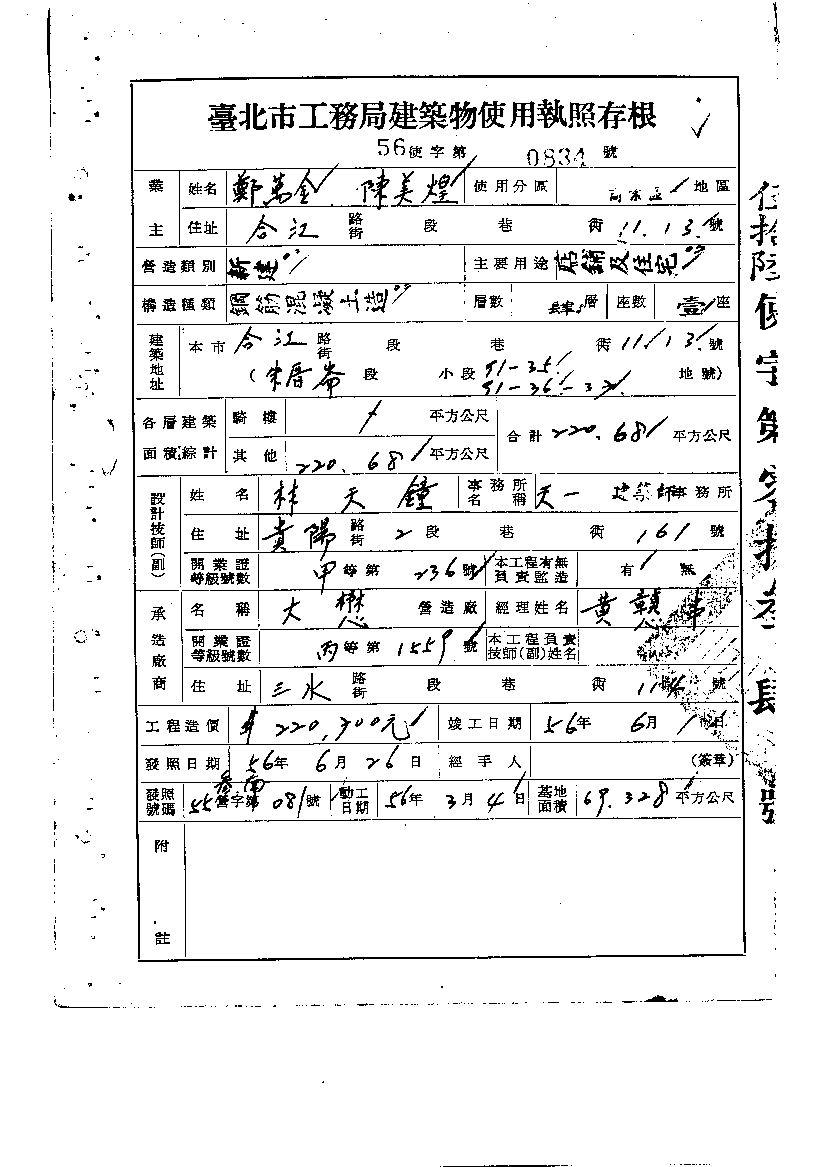 臺北市工務局建築物使用執照存根
56使字第 0834 號
業主 姓名 鄭萬金 陳美煌 使用分區 商業區 地區
住址 合江 路街 段 巷 衖 11.13.號
營造類別 新建 主要用途 店鋪及住宅
構造種類 鋼筋混凝土造 層數 肆 層 座數 壹 座
建築地址 本市 合江 路街 段 巷 衖 11/13/號
(朱厝崙 段 小段 51-35 51-36-37 地號)
各層建築面積綜計 騎樓 / 平方公尺 合計 220.68 平方公尺
其他 220.68 平方公尺
設計技師(副) 姓名 林天鐘 事務所名稱 天一 建築師事務所
住址 貴陽 路街 2 段 巷 衖 161 號
開業證等級號數 甲等第 236 號 本工程有無負責監造 有 無
承造廠商 名稱 大懋 營造廠 經理姓名 黃
開業證等級號數 丙等第 1559 號 本工程負責技師(副)姓名
住址 三水 路街 段 巷 衖 114 號
工程造價 220,700元 竣工日期 56年 6月 日
發照日期 56年 6月 26日 經手人 (簽章)
發照號碼 55 營字第 081號 動工日期 56年 3月 4日 基地面積 69.328 平方公尺
附註
伍拾陸使字第零捌叁肆號